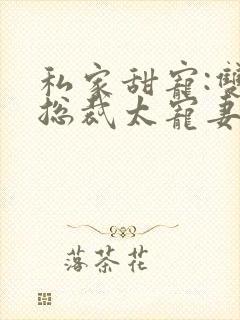 私家甜寵:雙
總裁太寵妻
落茶花